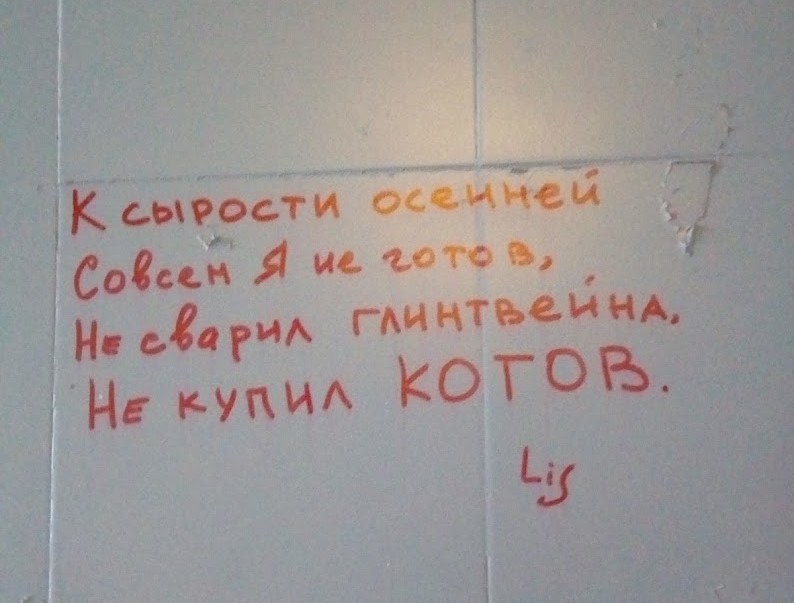 К сырости осенней
Совсем Я не готов,
Не сварил глинтвейна,
Не купил КОТОВ.
Lis